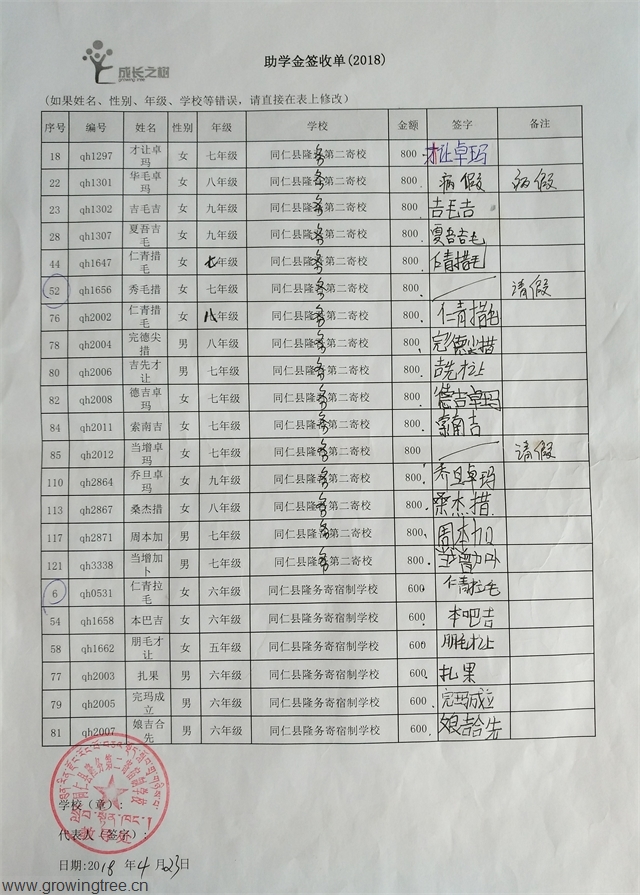 成长之树
growing tree
助学金签收单(2018)
(如果姓名、性别、年级、学校等错误，请直接在表上修改)
序号 编号 姓名 性别 年级 学校 金额 签字 备注
18 qh1297 才让卓玛 女 七年级 同仁县隆务第二寄校 800 才让卓玛
22 qh1301 华毛卓玛 女 八年级 同仁县隆务第二寄校 800 病假 病假
23 qh1302 吉毛吉 女 九年级 同仁县隆务第二寄校 800 吉毛吉
28 qh1307 夏吾吉毛 女 九年级 同仁县隆务第二寄校 800 夏吾吉毛
44 qh1647 仁青措毛 女 七年级 同仁县隆务第二寄校 800 仁青措毛
52 qh1656 秀毛措 女 七年级 同仁县隆务第二寄校 800 请假
76 qh2002 仁青措毛 女 八年级 同仁县隆务第二寄校 800 仁青措毛
78 qh2004 完德尖措 男 八年级 同仁县隆务第二寄校 800 完德尖措
80 qh2006 吉先才让 男 七年级 同仁县隆务第二寄校 800 吉先才让
82 qh2008 德吉卓玛 女 七年级 同仁县隆务第二寄校 800 德吉卓玛
84 qh2011 索南吉 女 七年级 同仁县隆务第二寄校 800 索南吉
85 qh2012 当增卓玛 女 七年级 同仁县隆务第二寄校 800 请假
110 qh2864 乔旦卓玛 女 九年级 同仁县隆务第二寄校 800 乔旦卓玛
113 qh2867 桑杰措 女 八年级 同仁县隆务第二寄校 800 桑杰措
117 qh2871 周本加 男 七年级 同仁县隆务第二寄校 800 周本加
121 qh3338 当增加卜 男 七年级 同仁县隆务第二寄校 800 当增加卜
6 qh0531 仁青拉毛 女 六年级 同仁县隆务寄宿制学校 600 仁青拉毛
54 qh1658 本巴吉 女 六年级 同仁县隆务寄宿制学校 600 本吧吉
58 qh1662 朋毛才让 女 五年级 同仁县隆务寄宿制学校 600 朋毛才让
77 qh2003 扎果 男 六年级 同仁县隆务寄宿制学校 600 扎果
79 qh2005 完玛成立 男 六年级 同仁县隆务寄宿制学校 600 完玛成立
81 qh2007 娘吉合先 男 六年级 同仁县隆务寄宿制学校 600 娘吉合先
学校（章）:
代表人（签字）:
教导处
日期:2018 年 4 月 23日
www.growingtree.cn